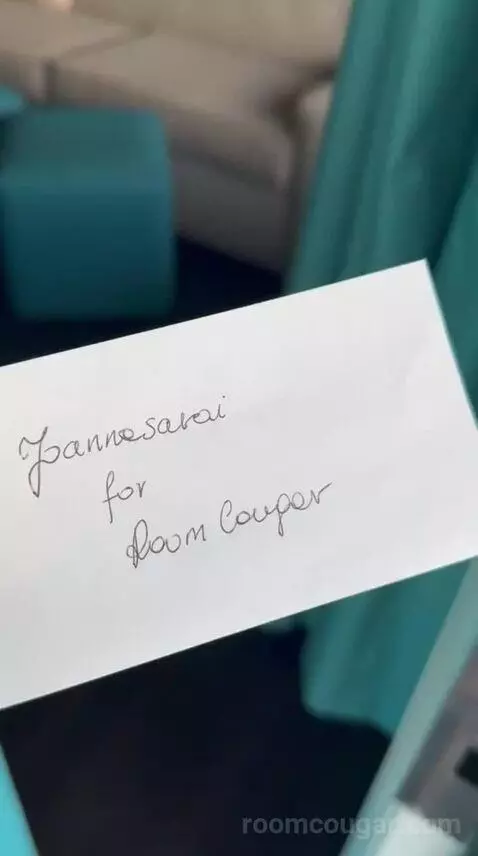 Joannasarai
for
Room Cougar
roomcougar.com